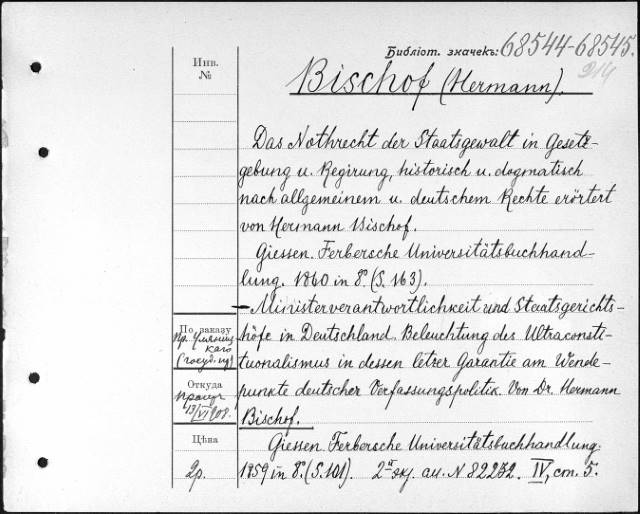 Библіот. значекъ: 68544-68545.
214
Инв.
№
Bischof (Hermann).
Das Nothrecht der Staatsgewalt in Gesetz-
gebung u. Regirung, historisch u. dogmatisch
nach allgemeinem u. deutschem Rechte erörtert
von Hermann Bischof.
Giessen. Ferbersche Universitätsbuchhand-
lung. 1860 in 8º (S. 163).
— Ministerverantwortlichkeit und Staatsgerichts-
höfe in Deutschland. Beleuchtung des Ultraconsti-
tuonalismus in dessen letzer Garantie am Wende-
punkte deutscher Verfassungspolitik. Von Dr. Hermann
Bischof.
Giessen. Ferbersche Universitätsbuchhandlung.
1859 in 8º (S. 101). 2й экз. см. N 82272. IV, ст. 5.
По заказу
пр.
каго
Откуда
13/VI 908.
Цѣна
2р.